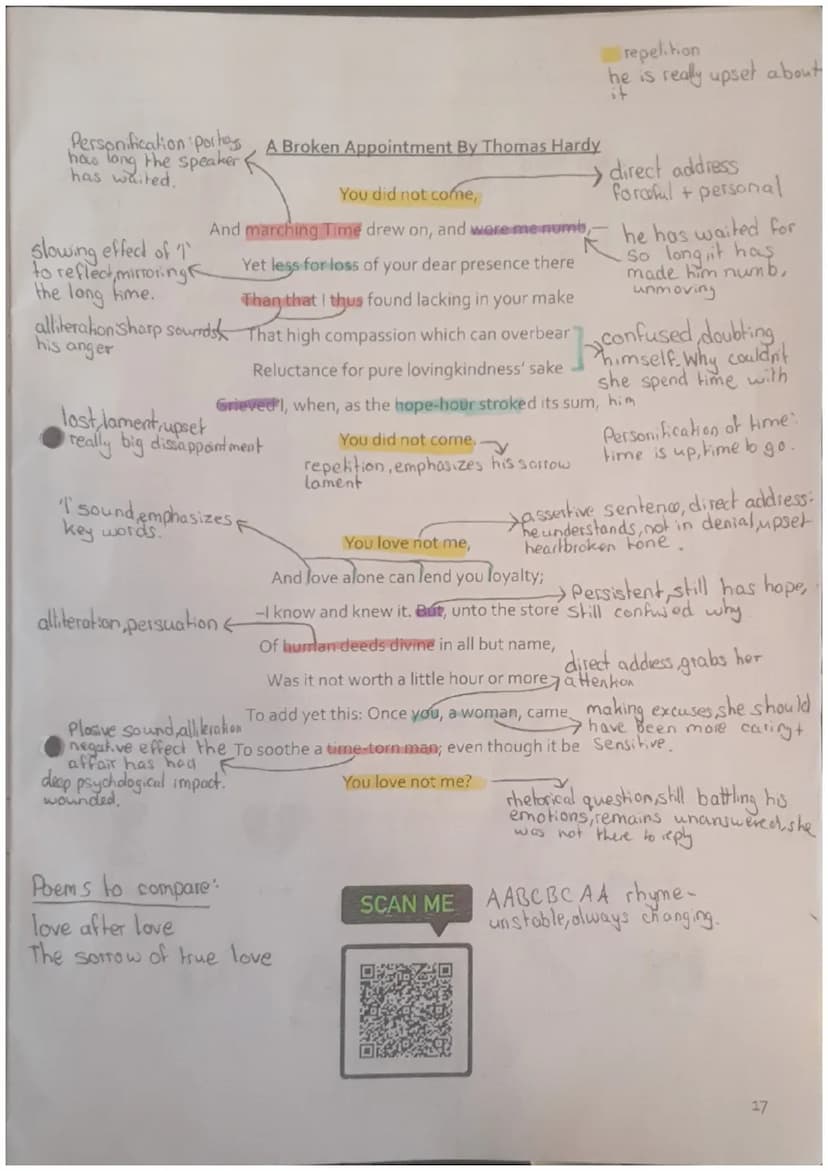 repetition
he is really upset about
it
Personification: portrays
how long the speaker
has waited.
A Broken Appointment By Thomas Hardy
direct address
forceful + personal
You did not come,
And marching Time drew on, and wore me numb,
he has waited for
so long it has
made him numb,
unmoving
slowing effect of 'l'
to reflect, mirroring
the long time.
Yet less for loss of your dear presence there
Than that I thus found lacking in your make
alliteration sharp sounds
his anger
That high compassion which can overbear
Reluctance for pure lovingkindness' sake
confused, doubting
himself. Why couldn't
she spend time with
him
Grieved I, when, as the hope-hour stroked its sum,
lost, lament, upset
really big dissappointment
You did not come.
repetition, emphasizes his sorrow
lament
Personification of time:
time is up, time to go.
'l' sound, emphasizes
key words.
assertive sentence, direct address:
he understands, not in denial, upset
heartbroken tone.
You love not me,
And love alone can lend you loyalty;
–I know and knew it. But, unto the store
Persistent, still has hope,
still confused why
alliteration, persuation
Of human deeds divine in all but name,
Was it not worth a little hour or more
direct address, grabs her
attention
To add yet this: Once you, a woman, came
making excuses, she should
have been more caring +
sensitive.
Plosive sound, alliteration
negative effect the
affair has had
deep psychological impact.
wounded.
To soothe a time-torn man; even though it be
You love not me?
rhetorical question, still battling his
emotions, remains unanswered, she
was not there to reply
Poems to compare:
love after love
The sorrow of true love
SCAN ME
AABCBCAA rhyme-
unstable, always changing.
17